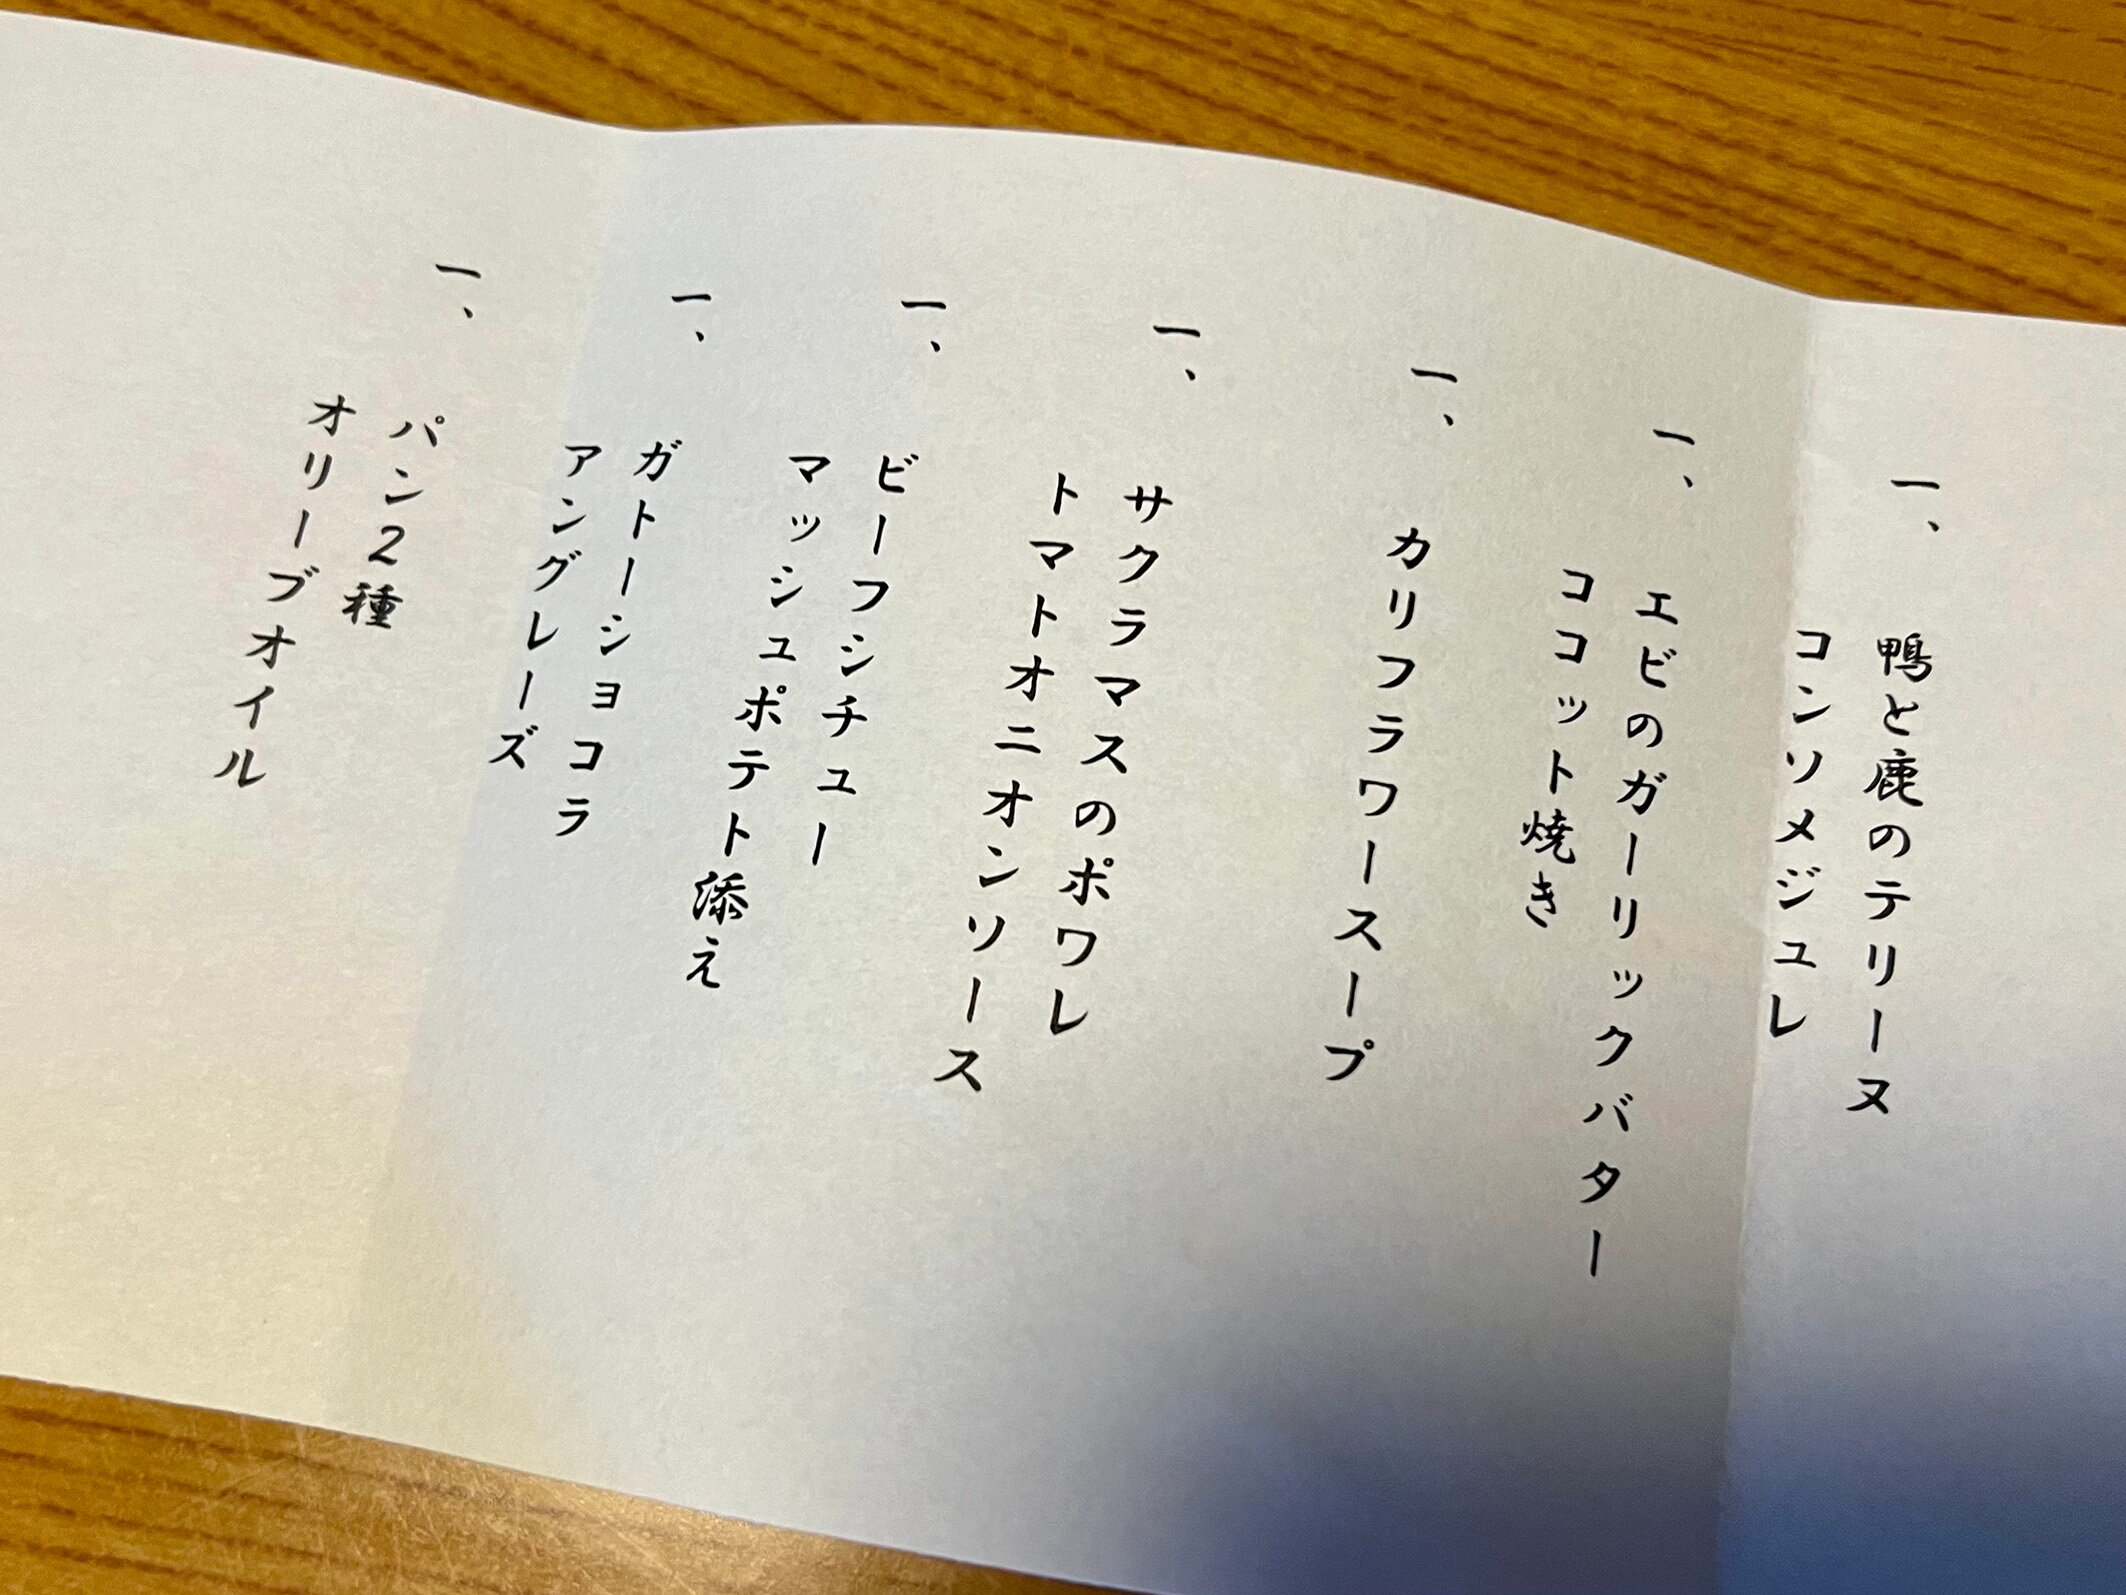 一、
鴨と鹿のテリーヌ
コンソメジュレ
一、
エビのガーリックバター
ココット焼き
一、
カリフラワースープ
一、
サクラマスのポワレ
トマトオニオンソース
一、
ビーフシチュー
マッシュポテト添え
一、
ガトーショコラ
アングレーズ
一、
パン2種
オリーブオイル